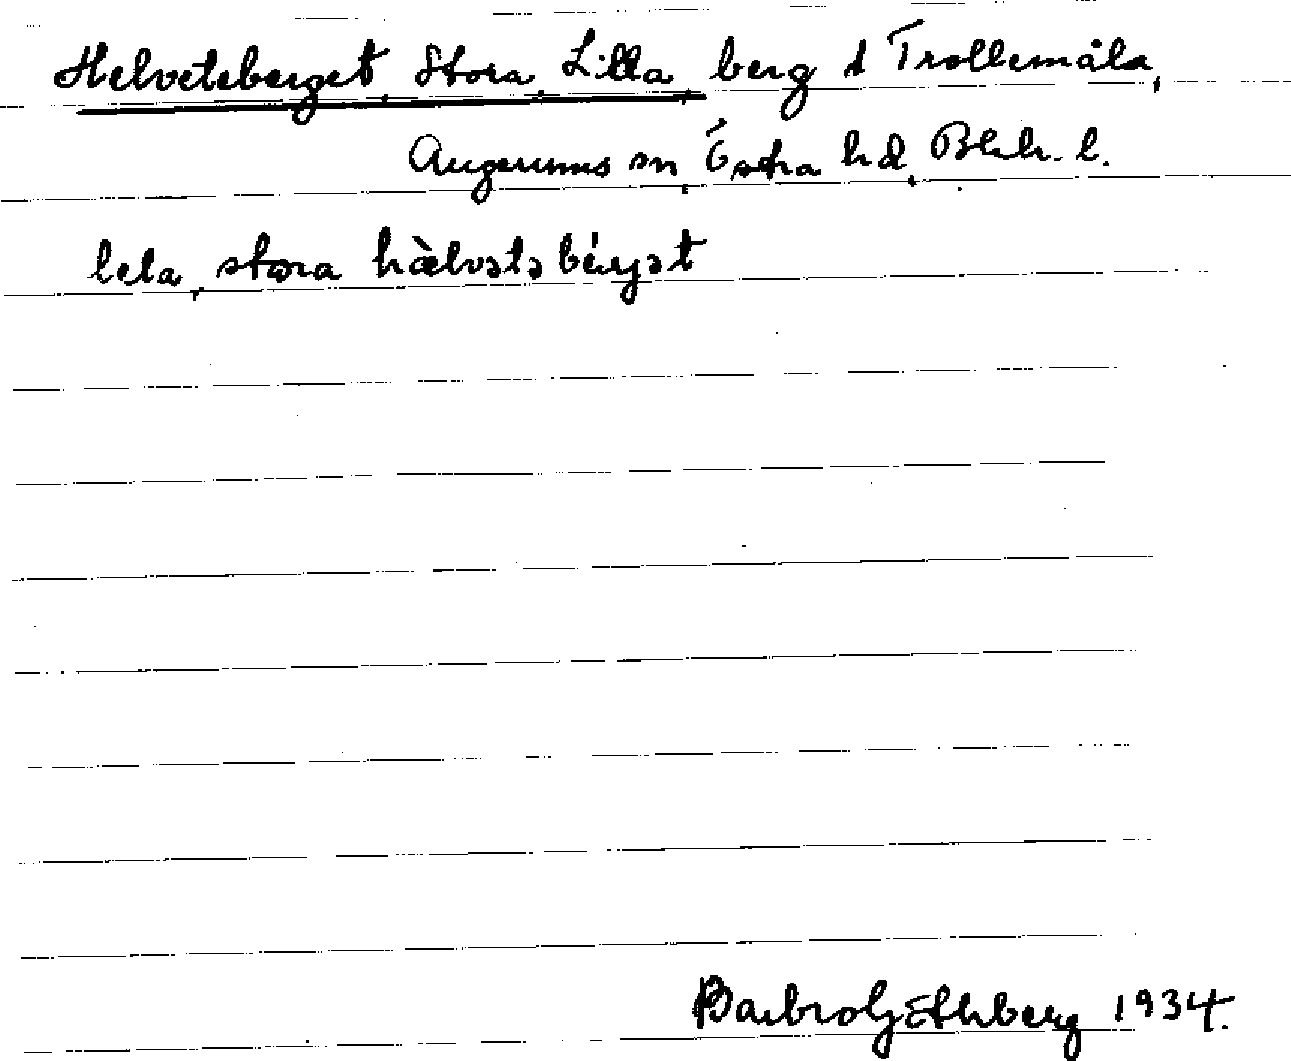 Helveteberget, Stora, Lilla, berg i Trollemåla,
Augerums sn, Östra hd, Blek. l.
lela, stora hàlvətəbérjət
Barbro Göthberg 1934.